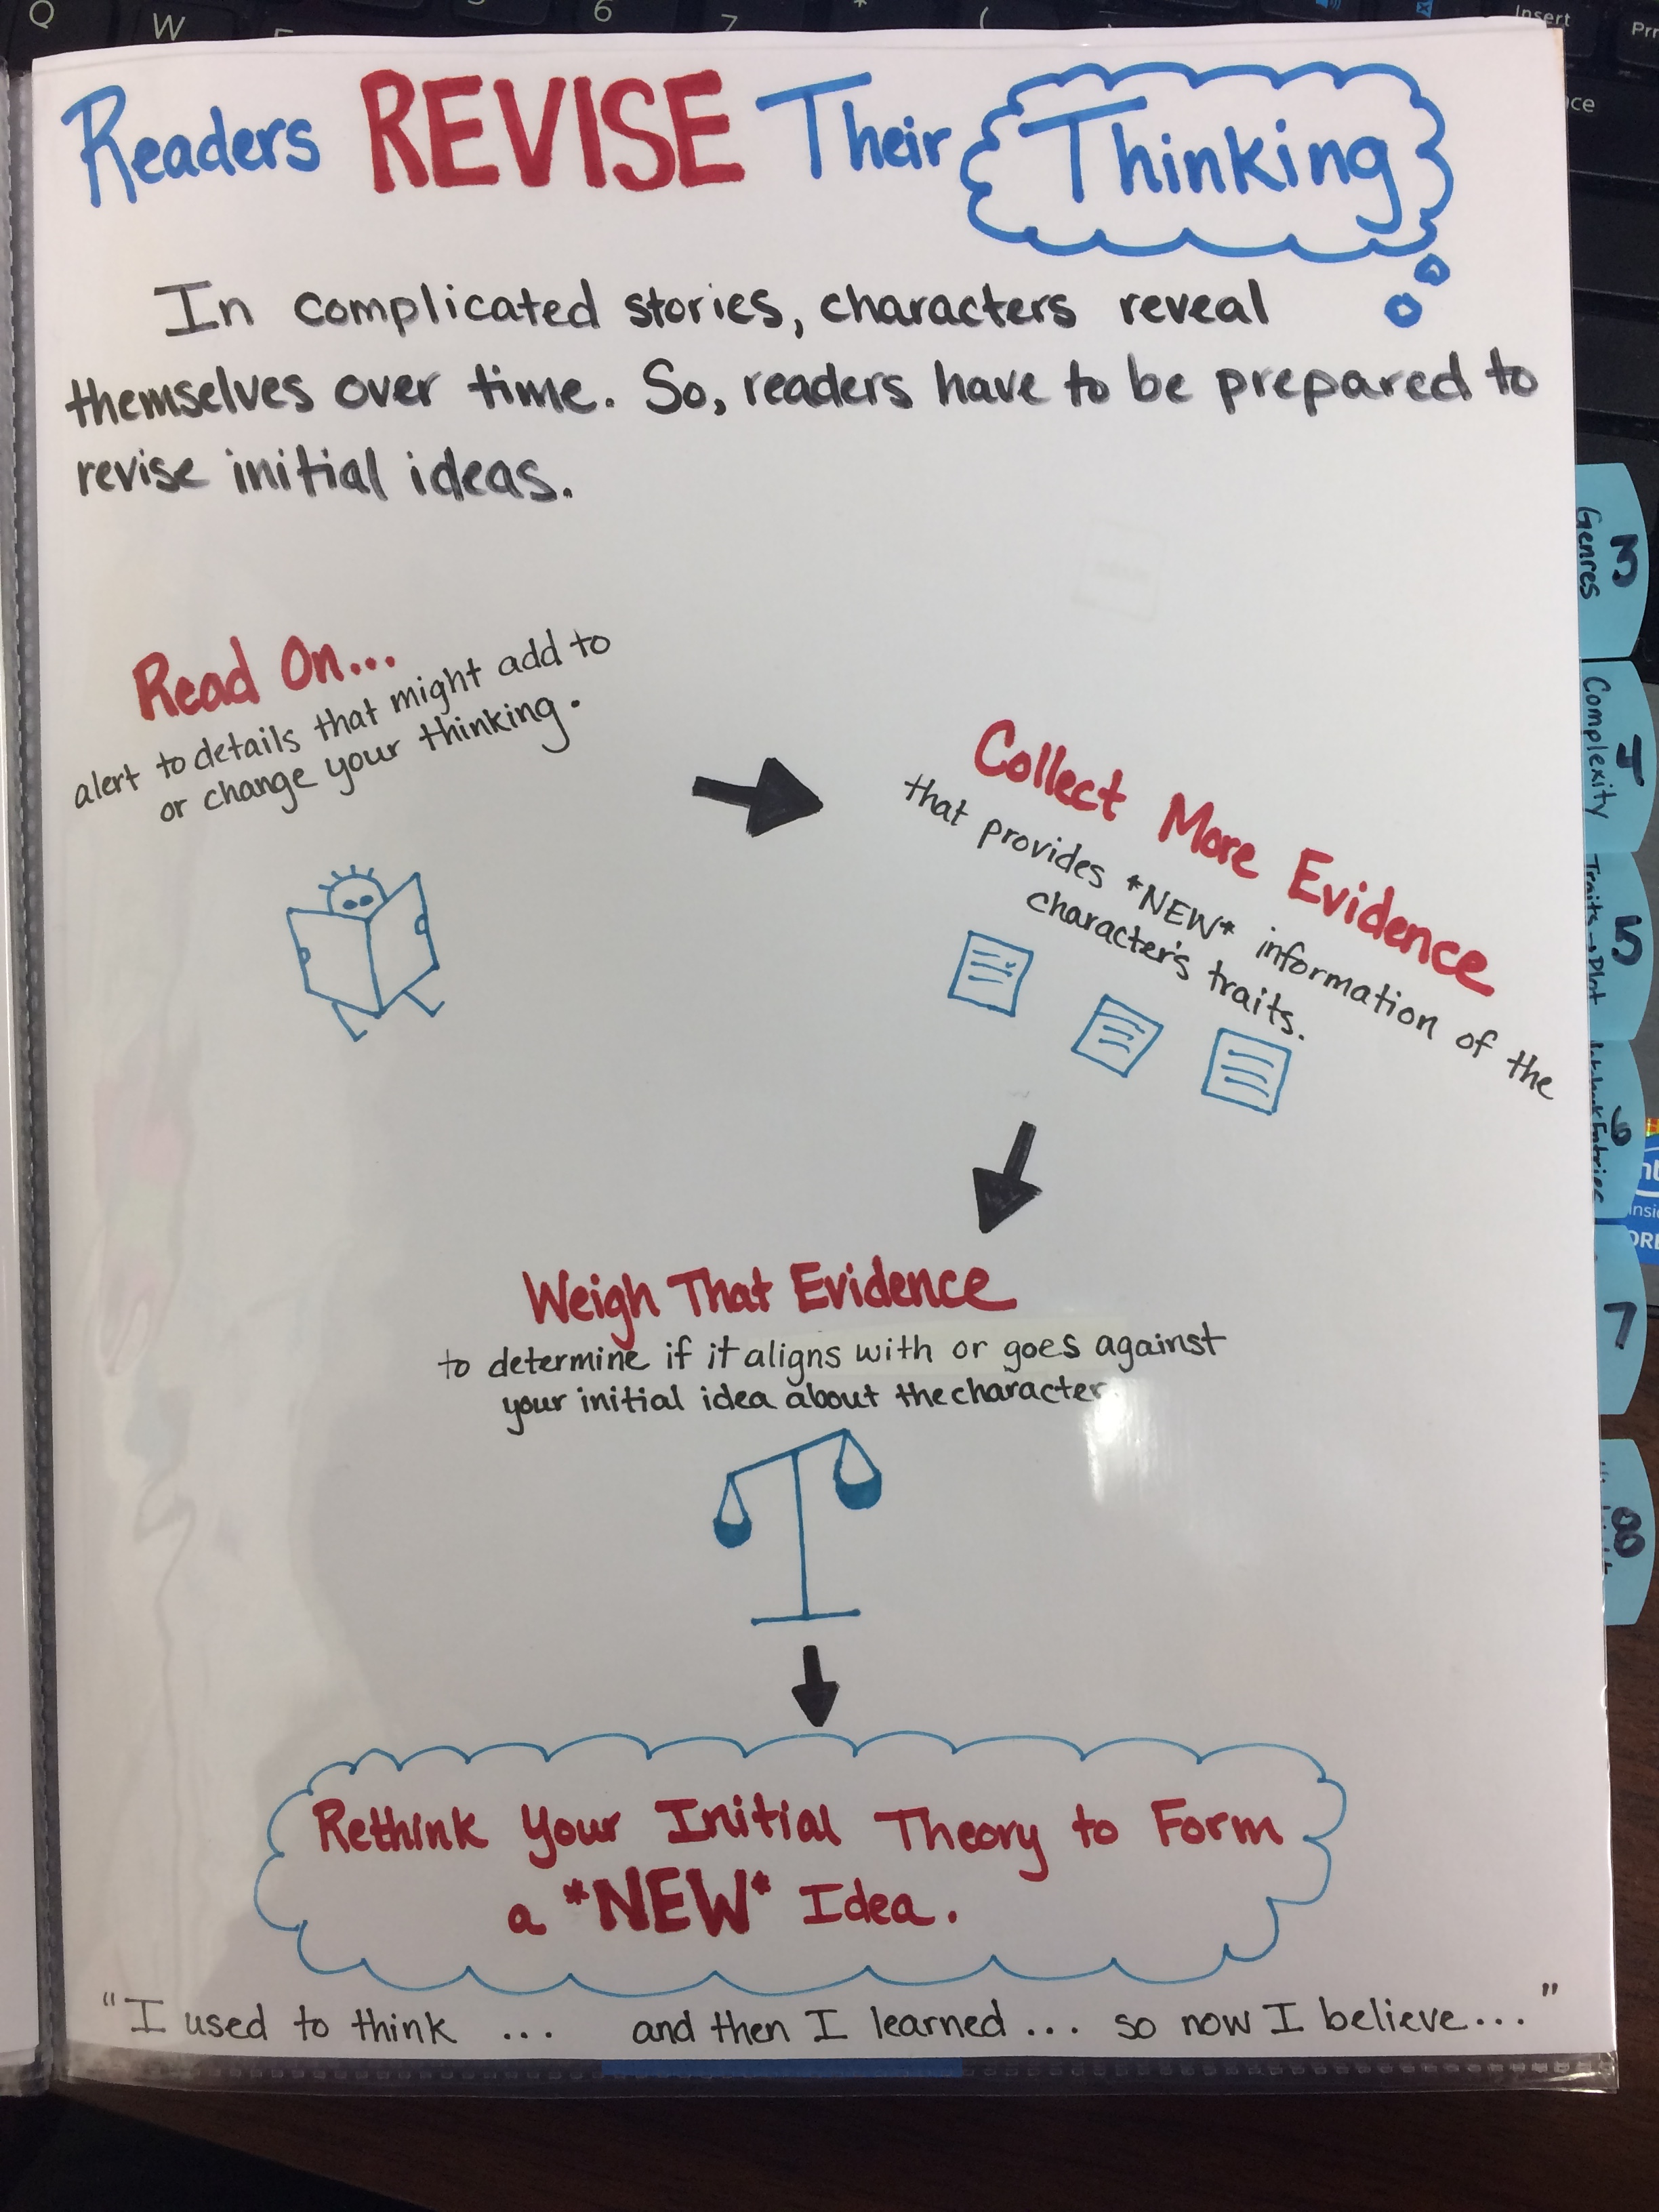 Readers REVISE Their Thinking
In complicated stories, characters reveal
themselves over time. So, readers have to be prepared to
revise initial ideas.
Read On...
alert to details that might add to
or change your thinking.
Collect More Evidence
that provides *NEW* information of the
character's traits.
Weigh That Evidence
to determine if it aligns with or goes against
your initial idea about the character
Rethink Your Initial Theory to Form
a *NEW* Idea.
"I used to think ... and then I learned ... so now I believe..."
3
Genres
4
Complexity
5
Traits → Plot
6
Entries
7
8
Q
W
6
7
*
(
Insert